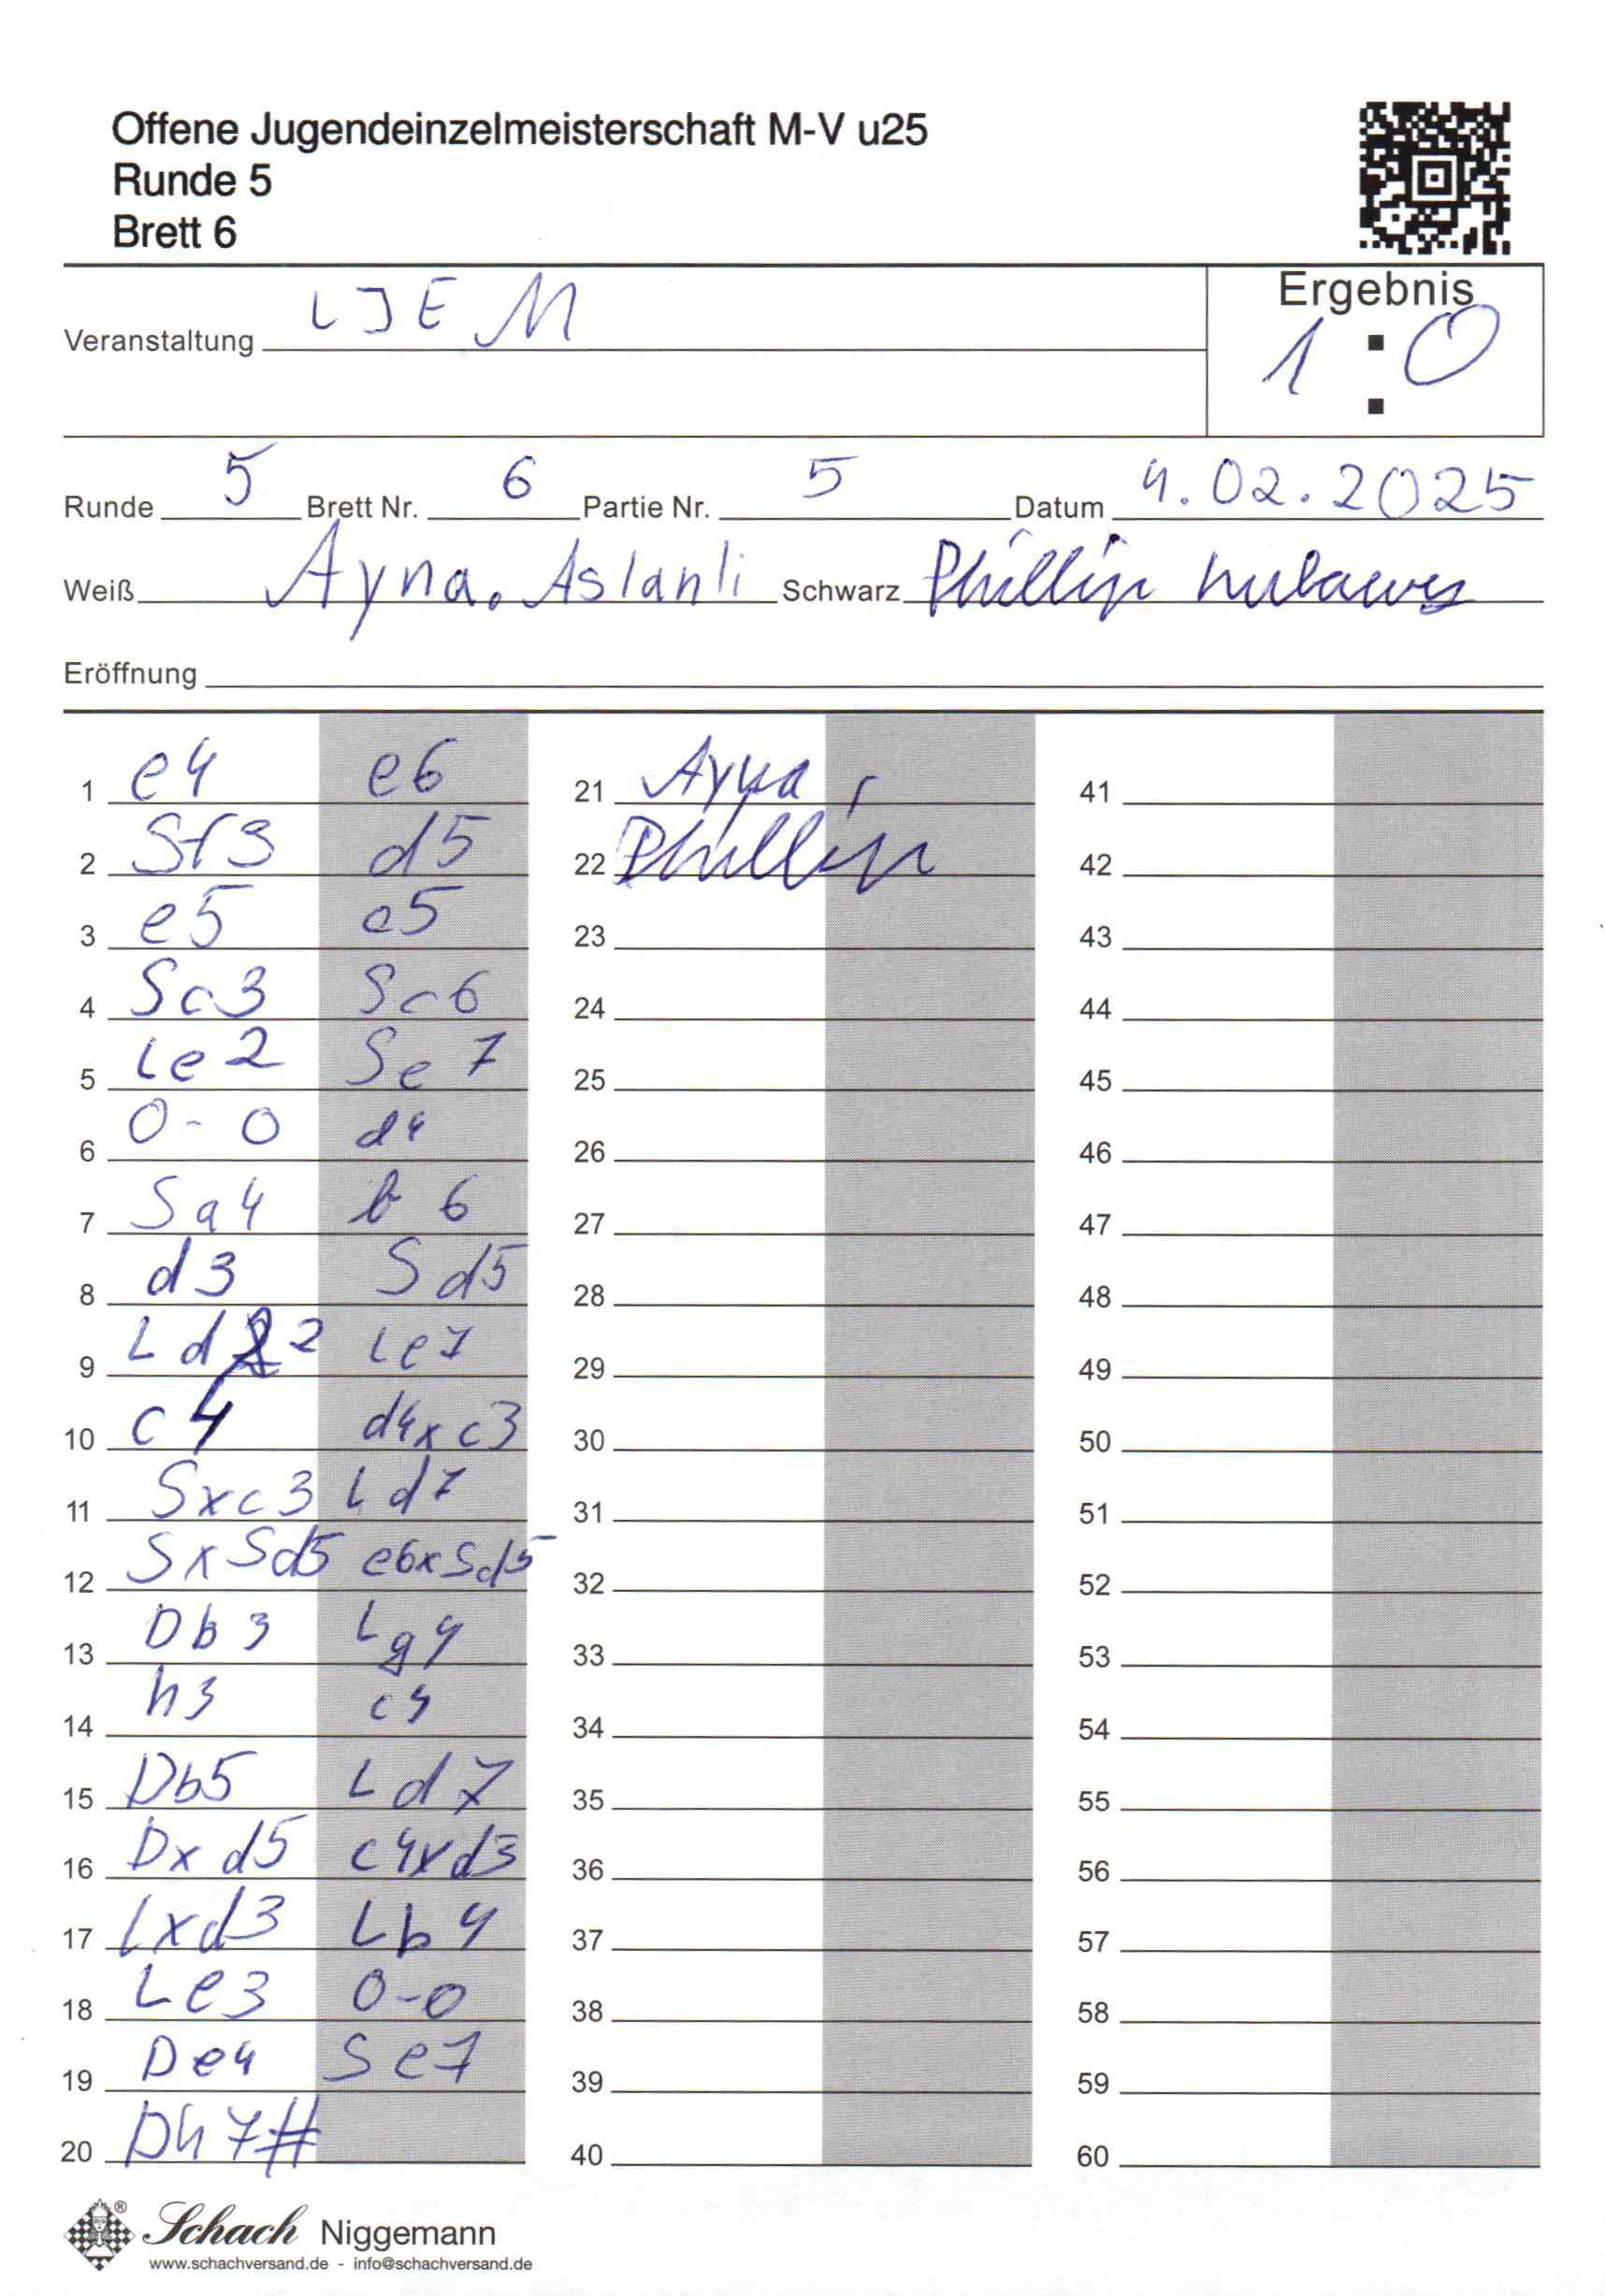 Offene Jugendeinzelmeisterschaft M-V u25
Runde 5
Brett 6
Ergebnis
Veranstaltung LJEM
1 : 0
Runde 5 Brett Nr. 6 Partie Nr. 5 Datum 4.02.2025
Weiß Ayna. Aslanli Schwarz Phillip
Eröffnung
1 e4 e6
2 Sf3 d5
3 e5 c5
4 Sc3 Sc6
5 Le2 Se7
6 0-0 d4
7 Sa4 b6
8 d3 Sd5
9 Ld2 2 Le7
10 c4 d4xc3
11 Sxc3 Ld7
12 SxSd5 e6xSd5
13 Db3 Lg4
14 h3 c4
15 Db5 Ld7
16 Dxd5 c4xd3
17 Lxd3 Lb4
18 Le3 0-0
19 De4 Se7
20 Dh7#
21 Ayna
22 Phillip
23
24
25
26
27
28
29
30
31
32
33
34
35
36
37
38
39
40
41
42
43
44
45
46
47
48
49
50
51
52
53
54
55
56
57
58
59
60
® Schach Niggemann
www.schachversand.de - info@schachversand.de